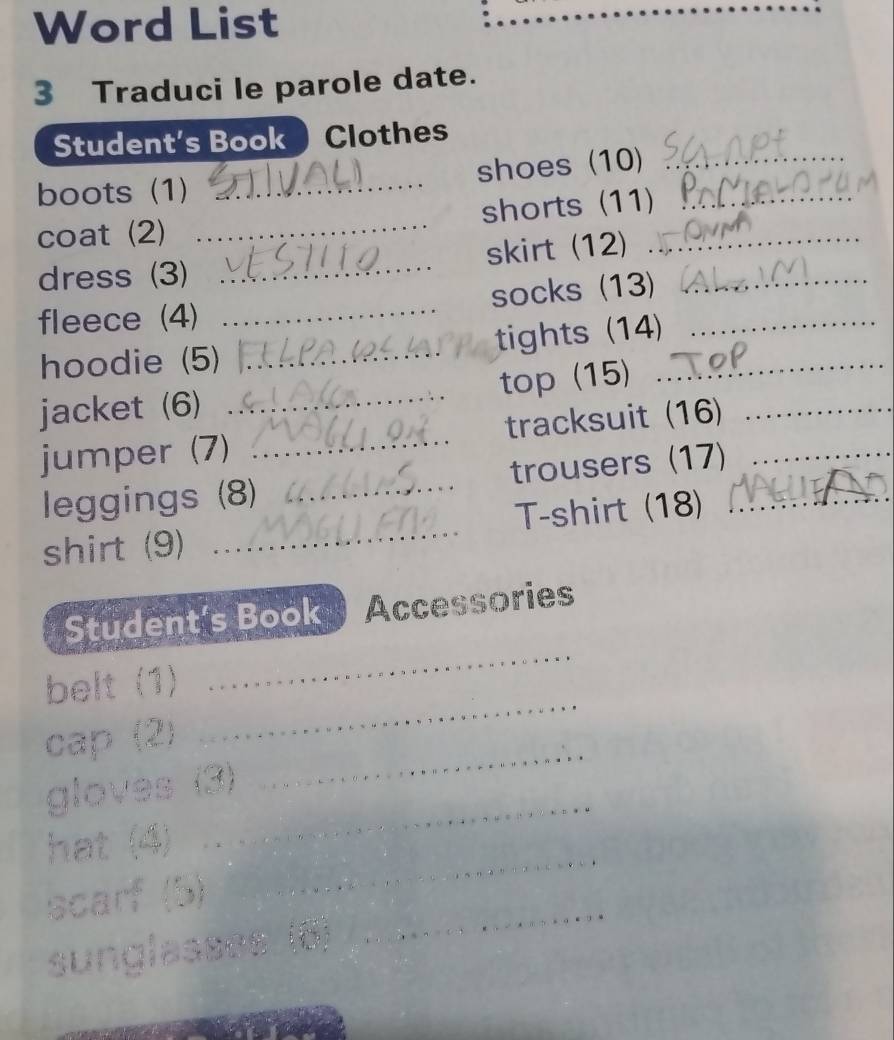 Word List
3 Traduci le parole date.
Student's Book Clothes
boots (1) STIVALI
coat (2)
dress (3) VESTITO
fleece (4)
hoodie (5) FELPA
jacket (6) GIACCA
jumper (7) MAGLIONE
leggings (8) LEGGINS
shirt (9) MAGLIETTA
shoes (10) SCARPE
shorts (11)
skirt (12) GONNA
socks (13) CALZINI
tights (14)
top (15) TOP
tracksuit (16)
trousers (17)
T-shirt (18)
Student's Book Accessories
belt (1)
cap (2)
gloves (3)
hat (4)
scarf (5)
sunglasses (6)